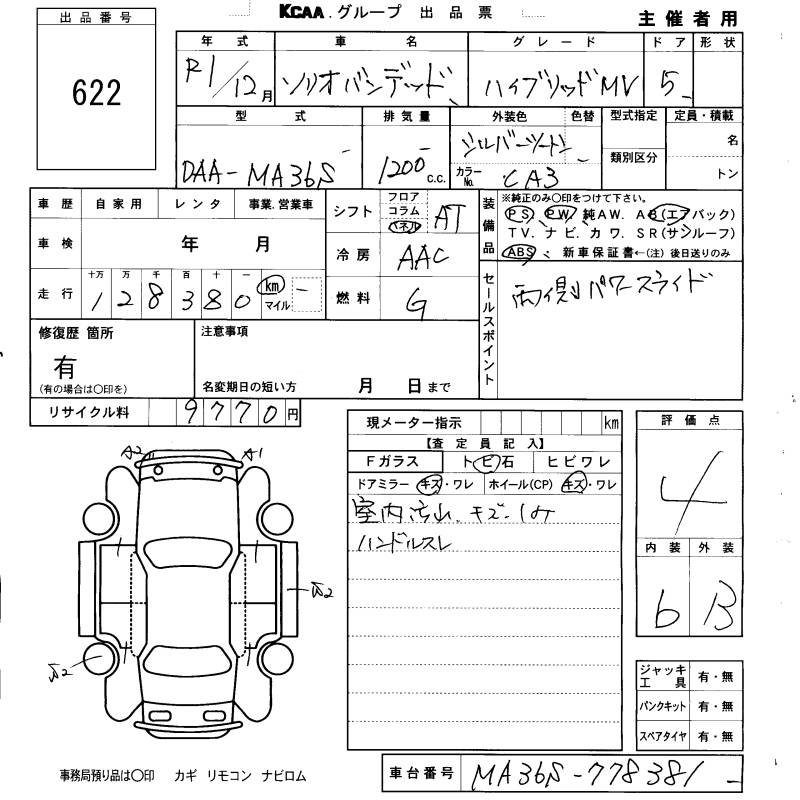 KCAA.グループ 出品票
主催者用
出品番号
622
年式 車名 グレード ドア 形状
R1/12月 ソリオバンデッド ハイブリッドMV 5
型式 排気量 外装色 色替 型式指定 定員・積載
類別区分 名
DAA-MA36S 1200c.c. シルバーツートン トン
カラーNo. CA3
車歴 自家用 レンタ 事業.営業車
車検 年 月
走行 十万 万 千 百 十 一
128380 km マイル
シフト フロア コラム パネル AT
冷房 AAC
燃料 G
装備品 ※純正のみ〇印をつけて下さい。
PS、PW、純AW. AB(エアバック)
TV. ナビ. カワ. SR(サンルーフ)
ABS、新車保証書←(注)後日送りのみ
セールスポイント
両側パワースライド
修復歴 箇所
有
(有の場合は〇印を)
注意事項
名変期日の短い方 月 日まで
リサイクル料 9770円
現メーター指示 km
【査定員記入】
Fガラス トビ石 ヒビワレ
ドアミラー キズ・ワレ ホイール(CP) キズ・ワレ
室内汚れ、キズ・
ハンドルスレ
評価点
4
内装 外装
b B
A2 A1
ジャッキ工具 有・無
パンクキット 有・無
スペアタイヤ 有・無
事務局預り品は〇印 カギ リモコン ナビロム
車台番号 MA36S-778381